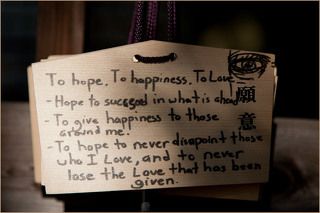 To hope. To happiness. To Love
- Hope to succeed in what is ahead
- To give happiness to those
around me.
- To hope to never disapoint those
who I Love, and to never
lose the Love that has been
given.
願意